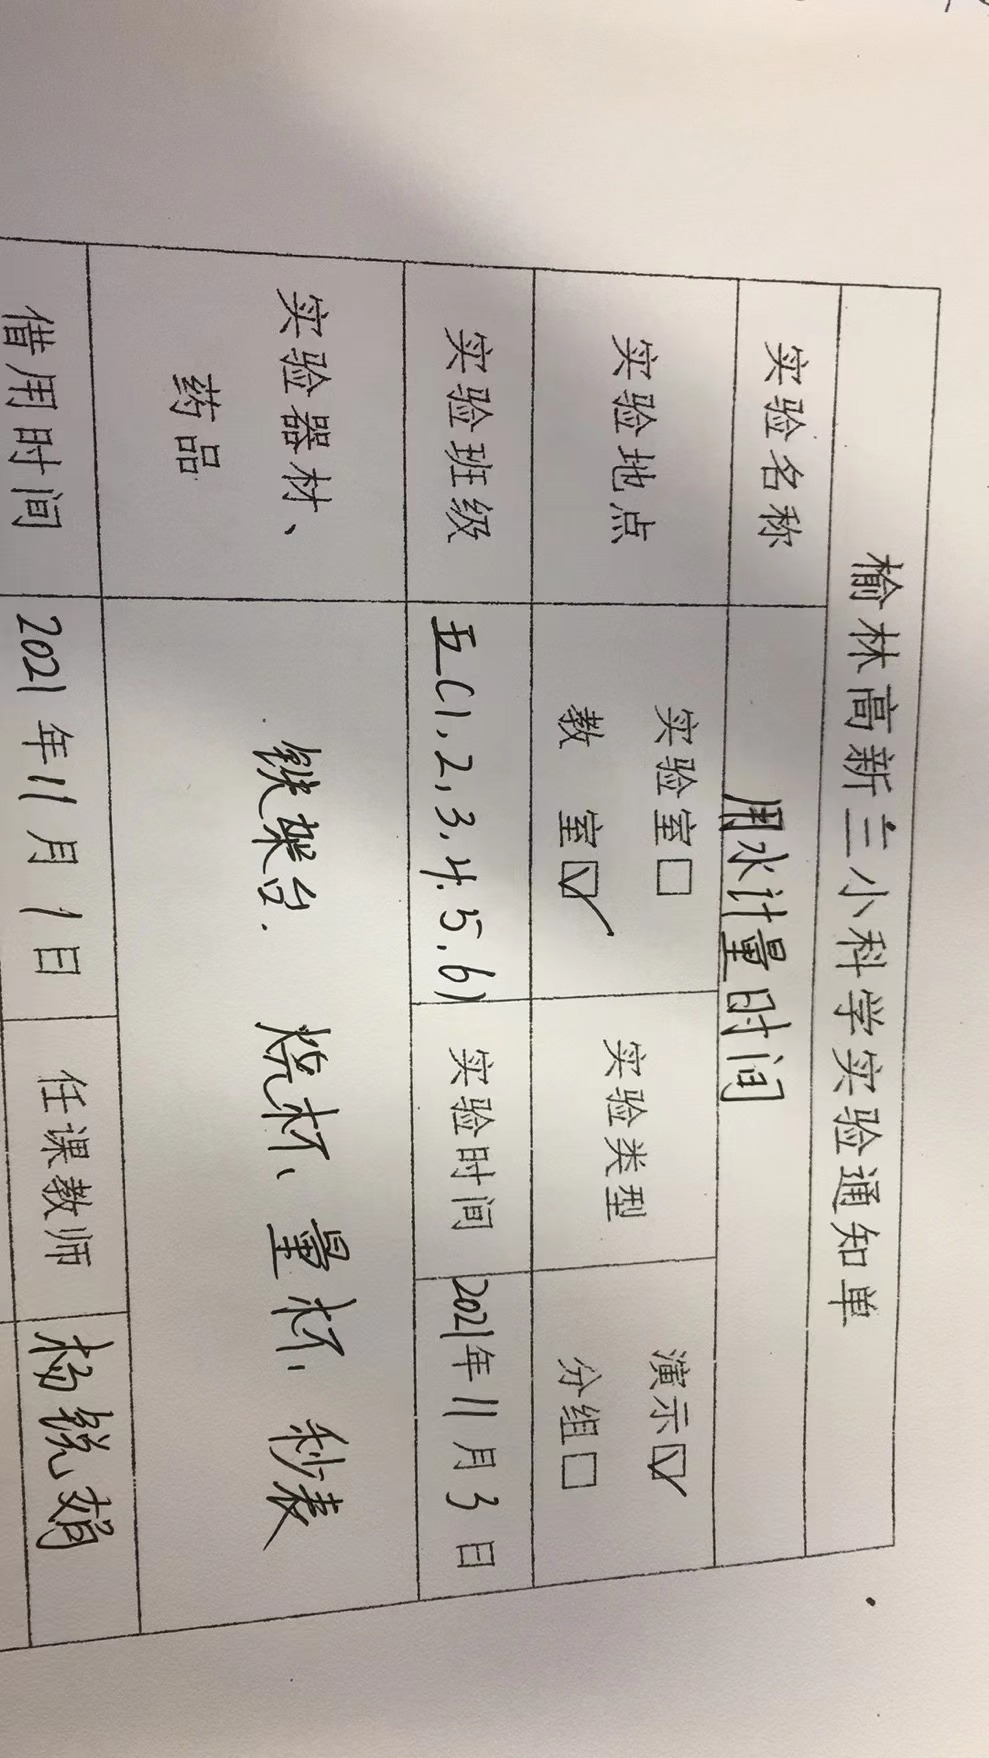 榆林高新三小科学实验通知单
实验名称 用水计量时间
实验地点 实验室□ 教 室☑ 实验类型 演示☑ 分组□
实验班级 五(1,2,3,4.5.6) 实验时间 2021年11月3日
实验器材、药品 铁架台. 烧杯、量杯、秒表
借用时间 2021年11月1日 任课教师 杨锐娟